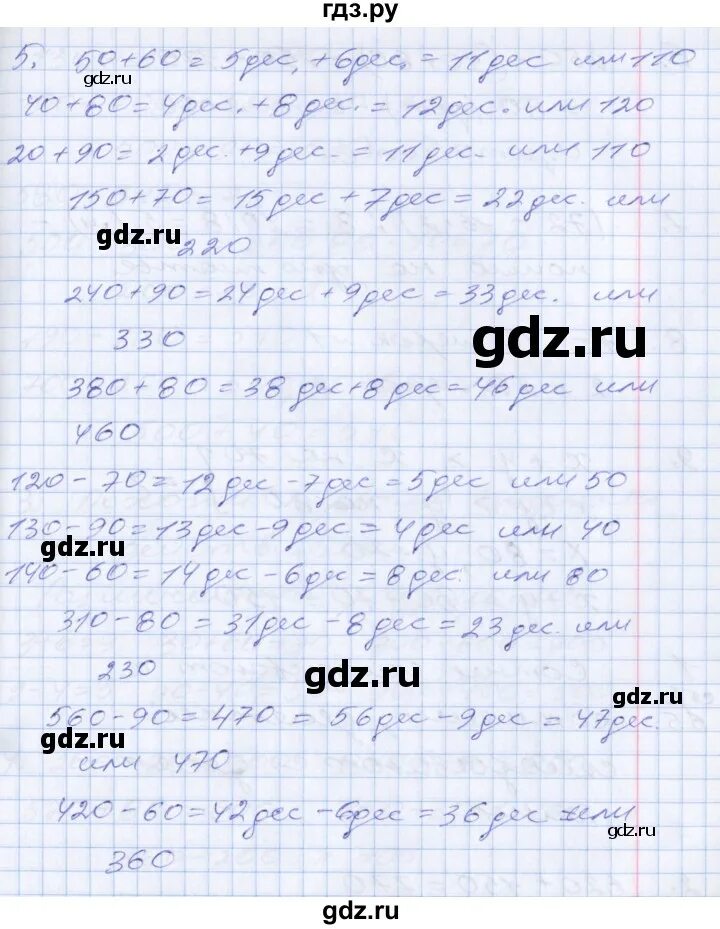 гдз.ру
5. 50+60 = 5дес. +6дес. = 11дес или 110
gdz.ru
40+80=4дес. +8дес. = 12дес. или 120
20+90= 2дес. +9дес. = 11дес. или 110
150+70= 15дес +7дес = 22дес. или
gdz.ru
220
240+90=24дес +9дес =33дес. или
330
gdz.ru
380+80=38дес+8дес=46дес или
460
120-70= 12дес -7дес =5дес или 50
130-90=13дес-9дес = 4дес или 40
gdz.ru
140-60=14дес -6дес =8дес. или 80
310-80 =31дес -8дес =23дес. или
230
gdz.ru
gdz.ru
560-90=470 = 56дес -9дес = 47дес.
gdz.ru
или 470
420-60=42дес -6дес =36дес или
gdz.ru
360
gdz.ru